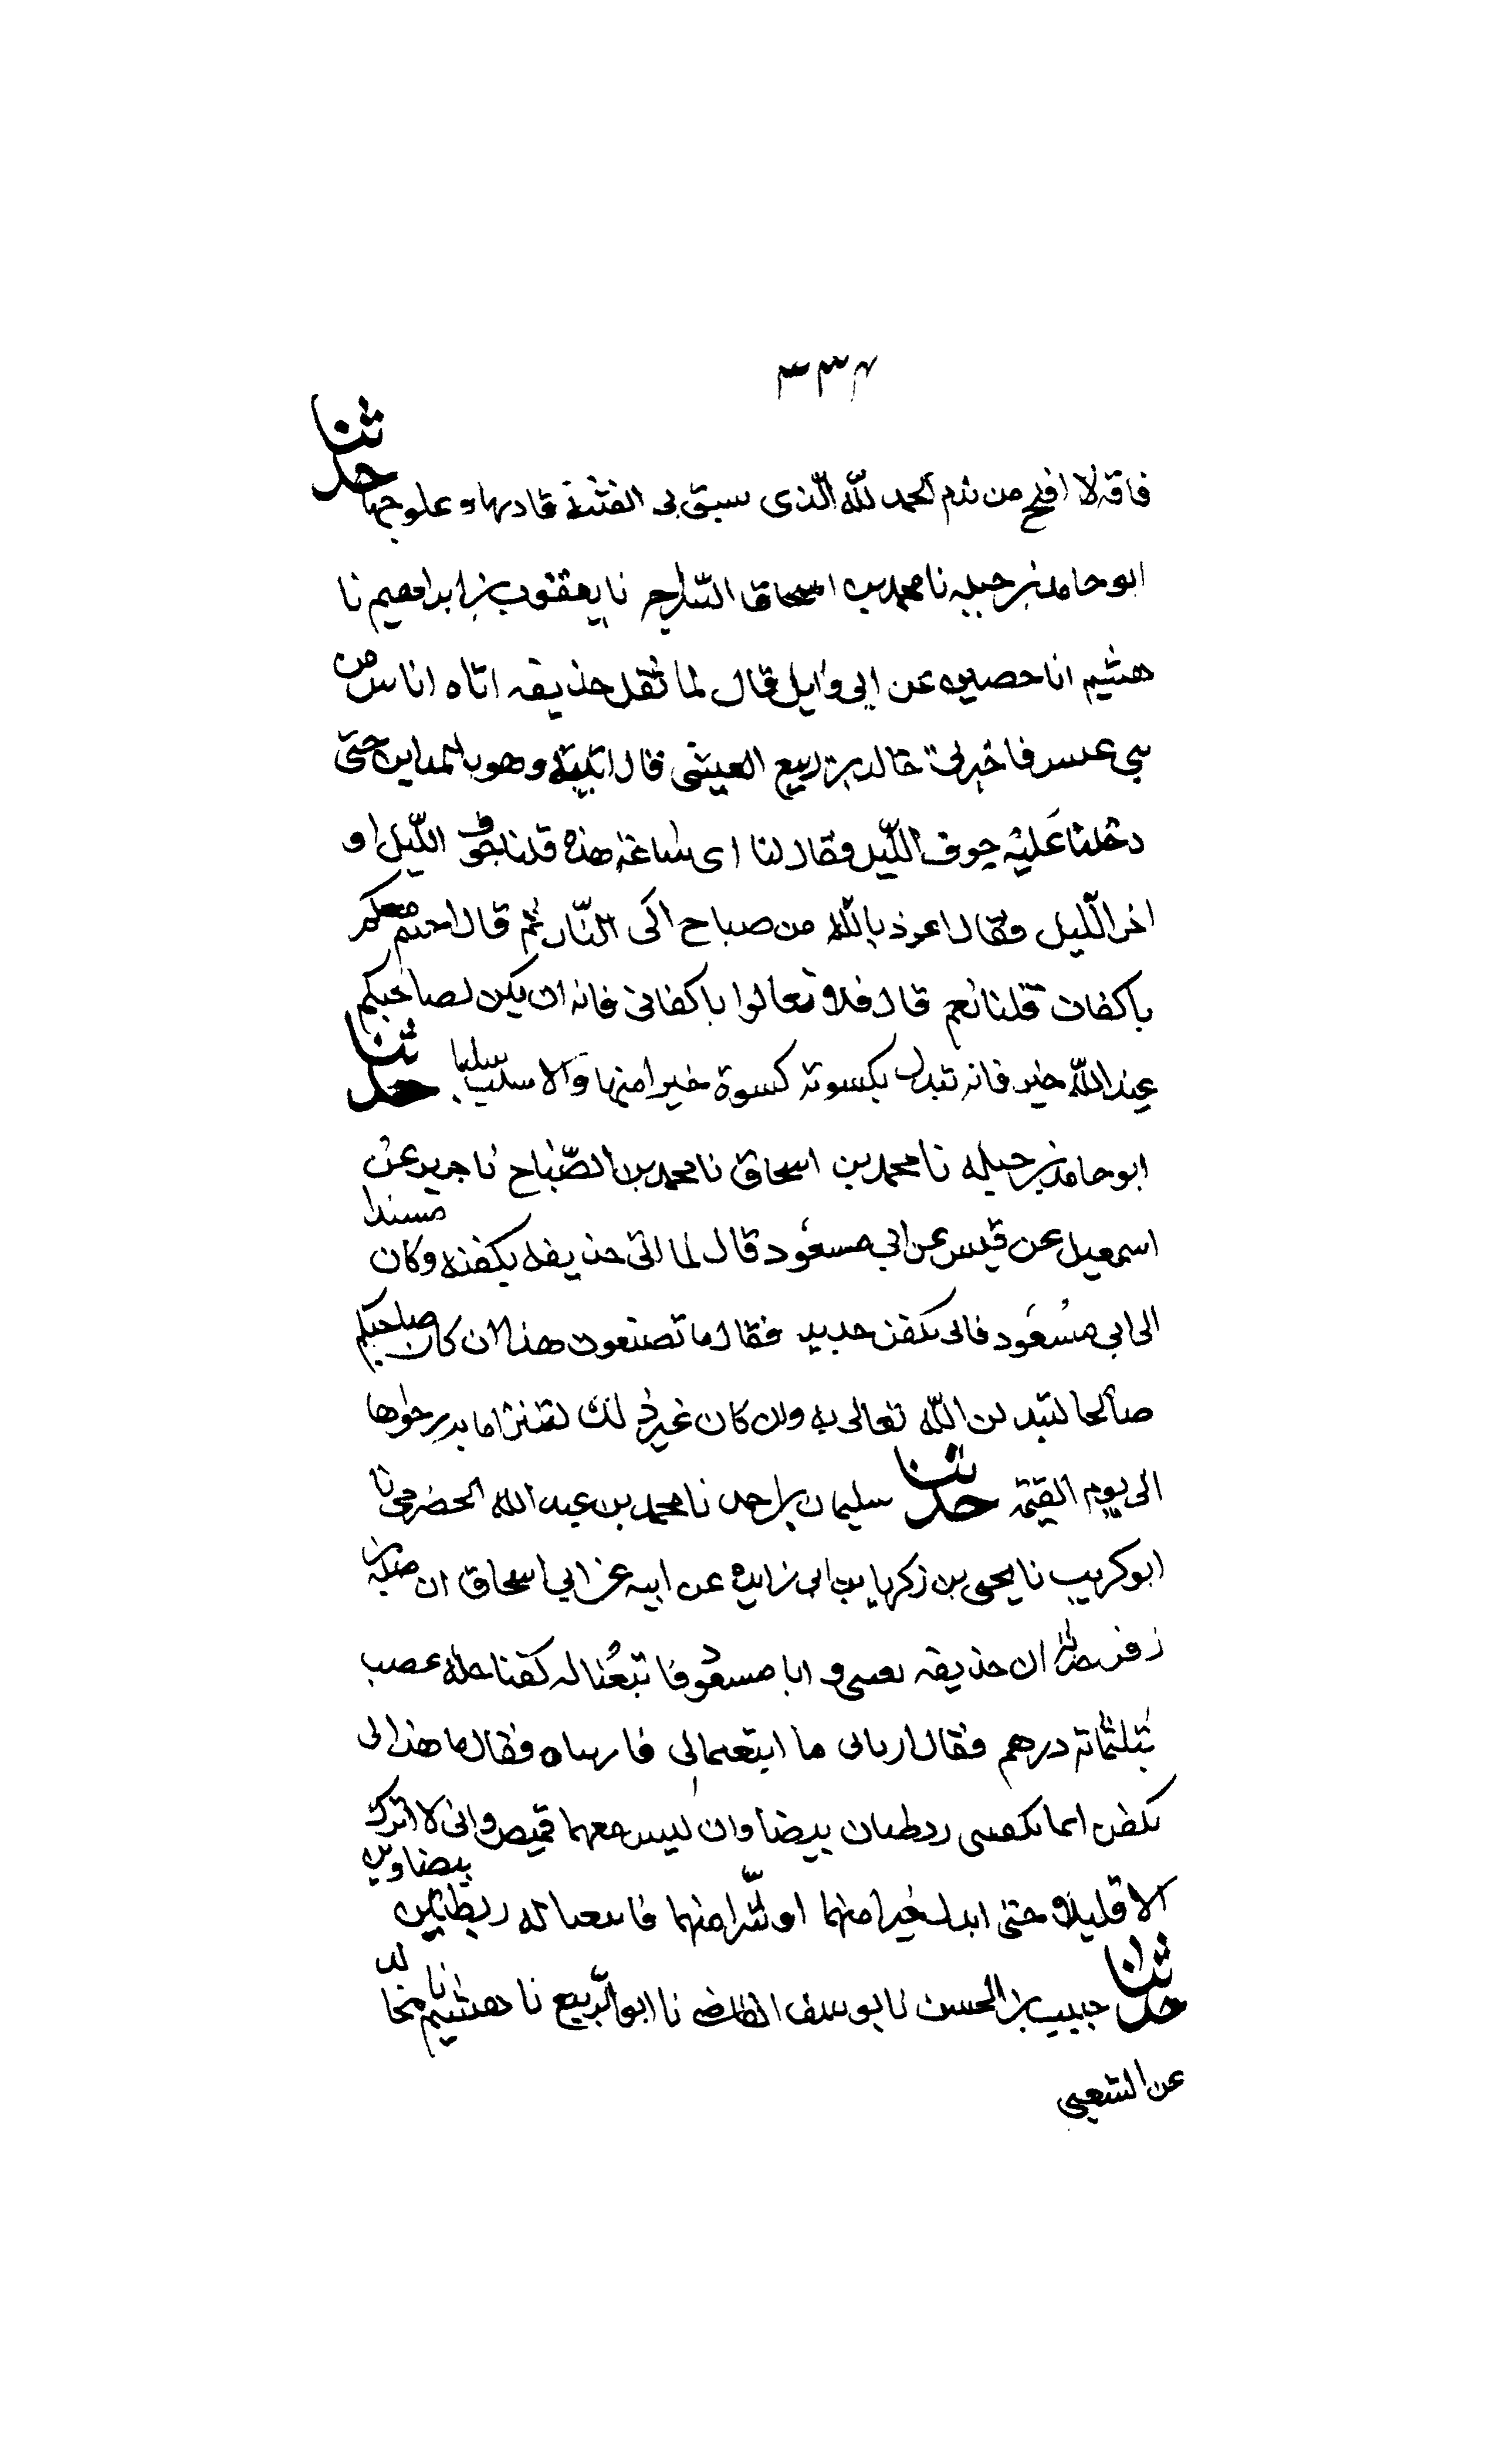 ٣٣٤
فاقة لا افلح من ندم الحمد لله الذى سبق بى الفتنة قادتها وعلوجها حدثنا
ابو حامد بن جبله نا محمد بن اسحاق السراج نا يعقوب بن ابراهيم نا
هشيم انا حصين عن ابى وايل قال لما ثقل حذيفه اتاه اناس من
بنى عبس فاخبرنى خالد بن ربيع العبسى قال اتيناه وهو بالمداين حتى
دخلنا عليه جوف الليل فقال لنا اى ساعة هذه قلنا جوف الليل او
اخر الليل فقال اعوذ بالله من صباح الى النار ثم قال اجئتم معكم
باكفان قلنا نعم قال فلا تغالوا باكفانى فانه ان يكن لصاحبكم
عند الله خير فانه تبدل بكسوته كسوة خيرا منها والا سلب سلبا حدثنا
ابو حامد بن جبله نا محمد بن اسحاق نا محمد بن الصباح نا جرير عن
اسمعيل عن قيس عن ابى مسعود قال لما اتى حذيفه بكفنه وكان مسندا
الى ابى مسعود فاتى بكفن جديد فقال ما تصنعون هذا ان كان صاحبكم
صالحا ليبدلن الله تعالى به وان كان غير ذلك
الى يوم القيمة حدثنا سليمان بن احمد نا محمد بن عبد الله الحضرمى نا
ابو كريب نا يحيى بن زكريا بن ابى زايده عن ابيه عن ابى اسحاق ان صلة بن
زفر حدثه ان حذيفه بعثنى وابا مسعود فابتعنا له كفنا حلة عصب
بثلثمائة درهم فقال اريانى ما ابتعتما لى فاريناه فقال ما هذا لى
بكفن انما يكفينى ريطتان بيضاوان ليس معهما قميص وانى لا اترك
الا قليلا حتى ابدل خيرا منهما او شرا منهما فابتعنا له ريطتين بيضاوين
حدثنا حبيب بن الحسن نا يوسف القاضى نا ابو الربيع نا هشيم نا مجالد
عن الشعبى